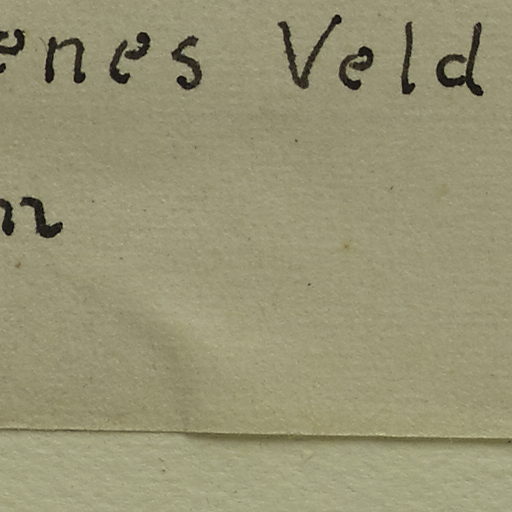 enes Veld
n